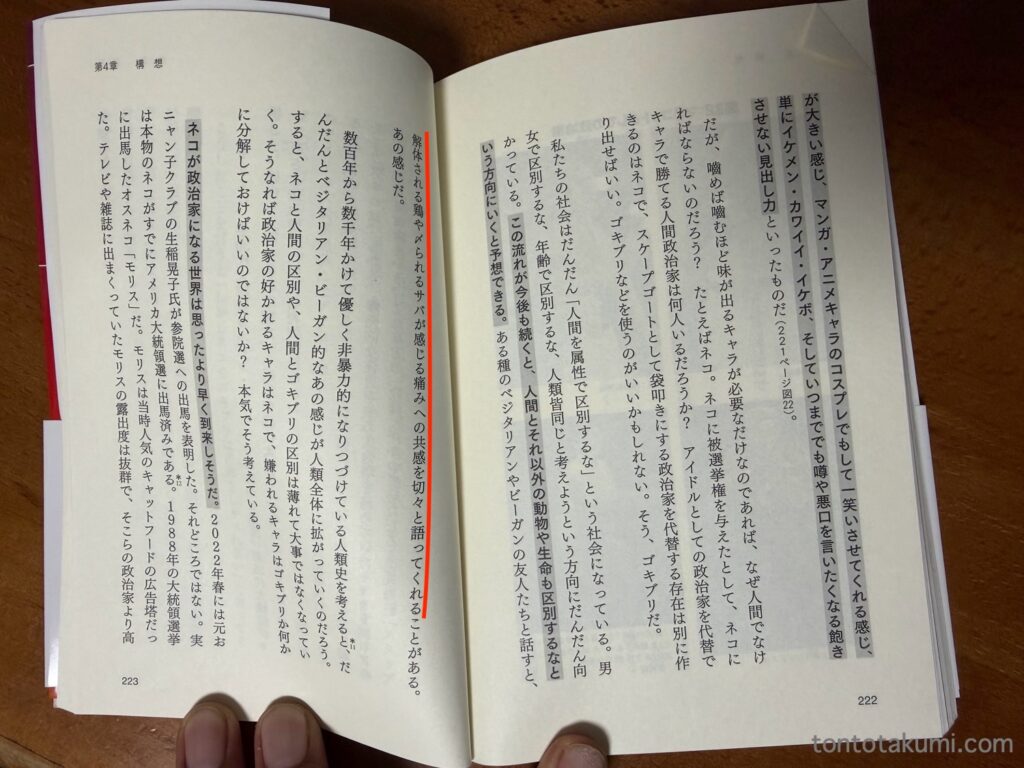 が大きい感じ、マンガ・アニメキャラのコスプレでもして一笑いさせてくれる感じ、
単にイケメン・カワイイ・イケボ、そしていつまででも噂や悪口を言いたくなる飽き
させない見出し力といったものだ(221ページ図22)。
だが、嚙めば嚙むほど味が出るキャラが必要なだけなのであれば、なぜ人間でなけ
ればならないのだろう? たとえばネコ。ネコに被選挙権を与えたとして、ネコに
キャラで勝てる人間政治家は何人いるだろうか? アイドルとしての政治家を代替で
きるのはネコで、スケープゴートとして袋叩きにする政治家を代替する存在は別に作
り出せばいい。ゴキブリなどを使うのがいいかもしれない。そう、ゴキブリだ。
私たちの社会はだんだん「人間を属性で区別するな」という社会になっている。男
女で区別するな、年齢で区別するな、人類皆同じと考えようという方向にだんだん向
かっている。この流れが今後も続くと、人間とそれ以外の動物や生命も区別するなと
いう方向にいくと予想できる。ある種のベジタリアンやビーガンの友人たちと話すと、
222
第4章 構想
解体される鶏や〆られるサバが感じる痛みへの共感を切々と語ってくれることがある。
あの感じだ。
数百年から数千年かけて優しく非暴力的になりつづけている人類史を考えると、だ
*11
んだんとベジタリアン・ビーガン的なあの感じが人類全体に拡がっていくのだろう。
すると、ネコと人間の区別や、人間とゴキブリの区別は薄れて大事ではなくなってい
く。そうなれば政治家の好かれるキャラはネコで、嫌われるキャラはゴキブリか何か
に分解しておけばいいのではないか? 本気でそう考えている。
ネコが政治家になる世界は思ったより早く到来しそうだ。2022年春には元お
ニャン子クラブの生稲晃子氏が参院選への出馬を表明した。それどころではない。実
は本物のネコがすでにアメリカ大統領選に出馬済みである。1988年の大統領選挙
*12
に出馬したオスネコ「モリス」だ。モリスは当時人気のキャットフードの広告塔だっ
た。テレビや雑誌に出まくっていたモリスの露出度は抜群で、そこらの政治家より高
223
tontotakumi.com